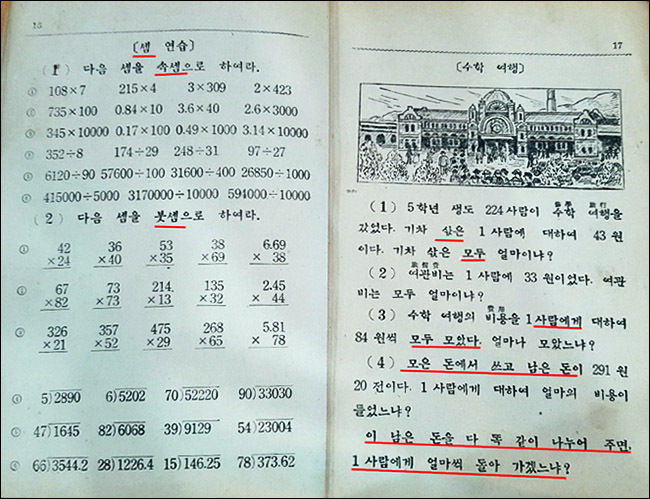 16
〔셈 연습〕
(1) 다음 셈을 속셈으로 하여라.
① 108×7 215×4 3×309 2×423
② 735×100 0.84×10 3.6×40 2.6×3000
③ 345×10000 0.17×100 0.49×1000 3.14×10000
④ 352÷8 174÷29 248÷31 97÷27
⑤ 6120÷90 57600÷100 31600÷400 26850÷1000
⑥ 415000÷5000 3170000÷10000 594000÷10000
(2) 다음 셈을 붓셈으로 하여라.
① 42 36 53 38 6.69
×24 ×40 ×35 ×69 × 38
② 67 73 214 135 2.45
×82 ×73 ×13 ×32 × 44
③ 326 357 475 268 5.81
×21 ×52 ×29 ×65 × 78
④ 5)2890 6)5202 70)52220 90)33030
⑤ 47)1645 82)6068 39)9129 54)23004
⑥ 66)3544.2 28)1226.4 15)146.25 78)373.62
17
〔수학 여행〕
修學 旅行
(1) 5학년 생도 224사람이 수학 여행을
갔었다. 기차 삯은 1사람에 대하여 43원
이다. 기차 삯은 모두 얼마이냐?
旅館費
(2) 여관비는 1사람에 33원이었다. 여관
비는 모두 얼마이냐?
費用
(3) 수학 여행의 비용을 1사람에게 대하여
84원씩 모두 모았다. 얼마나 모았느냐?
(4) 모은 돈에서 쓰고 남은 돈이 291원
20전이다. 1사람에게 대하여 얼마의 비용이
들었느냐?
이 남은 돈을 다 똑 같이 나누어 주면,
1사람에게 얼마씩 돌아 가겠느냐?